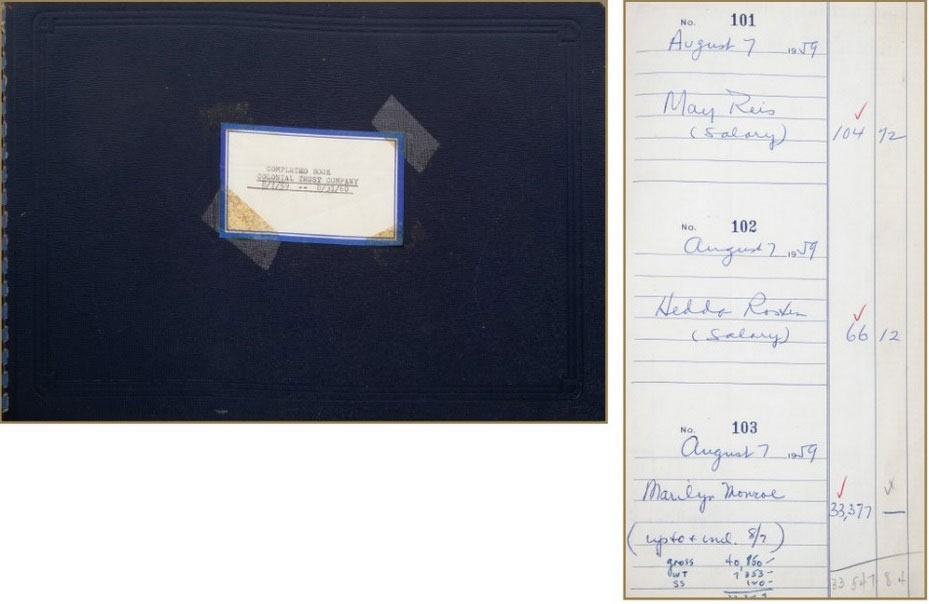 COMPLETED BOOK
COLONIAL TRUST COMPANY
No. 101
August 7 1959
May Reis
(Salary) 104 72
No. 102
August 7 1959
Hedda Rosten
(Salary) 66 12
No. 103
August 7 1959
Marilyn Monroe
33,377 —
(up to + incl. 8/7)
gross 40,950-
WT 7,453-
SS 120-
33 547 84